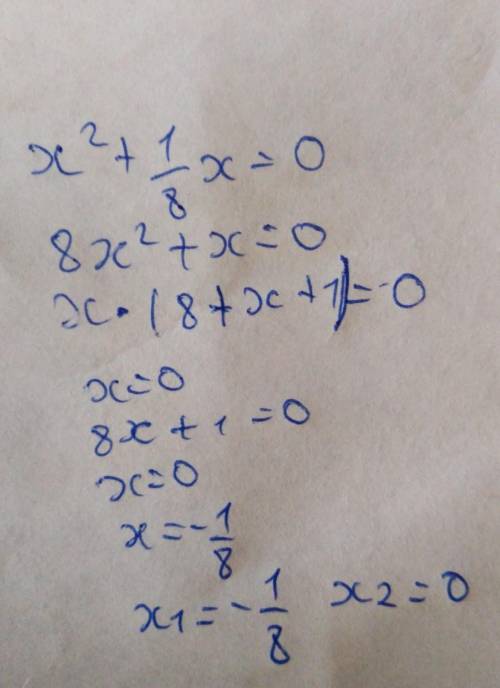 x² + 1/8 x = 0
8x² + x = 0
x · (8 + x + 1) = 0
x = 0
8x + 1 = 0
x = 0
x = -1/8
x1 = -1/8 x2 = 0